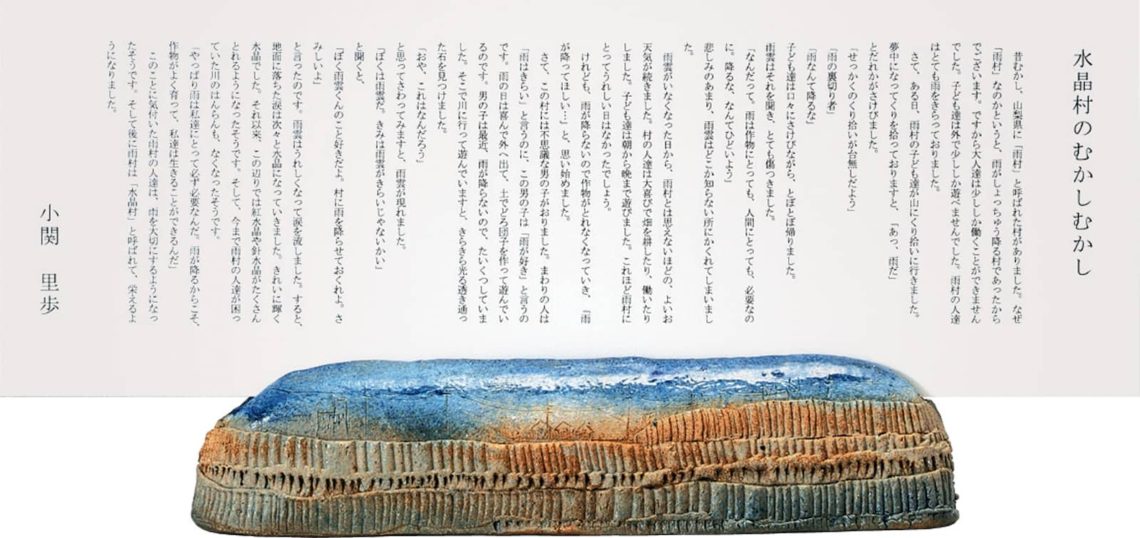 水晶村のむかしむかし
小関　里歩
昔むかし、山梨県に「雨村」と呼ばれた村がありました。なぜ
「雨村」なのかというと、雨がしょっちゅう降る村であったから
でございます。ですから大人達は少ししか働くことができません
でした。子ども達は外で少ししか遊べませんでした。雨村の人達
はとても雨をきらっておりました。
さて、ある日、雨村の子ども達が山にくり拾いに行きました。
夢中になってくりを拾っておりますと、「あっ、雨だ」
とだれかがさけびました。
「せっかくのくり拾いが台無しだよう」
「雨の裏切り者」
「雨なんて降るな」
子ども達は口々にさけびながら、とぼとぼ帰りました。
雨雲はそれを聞き、とても傷つきました。
「なんだって。雨は作物にとっても、人間にとっても、必要なの
に。降るな、なんてひどいよう」
悲しみのあまり、雨雲はどこか知らない所にかくれてしまいまし
た。
雨雲がいなくなった日から、雨村とは思えないほどの、よいお
天気が続きました。村の人達は大喜びで畑を耕したり、働いたり
しました。子ども達は朝から晩まで遊びました。これほど雨村に
とってうれしい日はなかったでしょう。
けれども、雨が降らないので作物がとれなくなっていき、「雨
が降ってほしい…」と、思い始めました。
さて、この村には不思議な男の子がおりました。まわりの人は
「雨はきらい」と言うのに、この男の子は「雨が好き」と言うの
です。雨の日は喜んで外へ出て、土でどろ団子を作って遊んでい
るのです。男の子は最近、雨が降らないので、たいくつしていま
した。そこで川に行って遊んでいますと、きらきら光る透き通っ
た石を見つけました。
「おや、これはなんだろう」
と思ってさわってみますと、雨雲が現れました。
「ぼくは雨雲だ。きみは雨雲がきらいじゃないかい」
と聞くと、
「ぼく雨雲くんのこと好きだよ。村に雨を降らせておくれよ。さ
みしいよ」
と言ったのです。雨雲はうれしくなって涙を流しました。すると、
地面に落ちた涙は次々と水晶になっていきました。きれいに輝く
水晶でした。それ以来、この辺りでは紅水晶や針水晶がたくさん
とれるようになったそうです。そして、今まで雨村の人達が困っ
ていた川のはんらんも、なくなったそうです。
「やっぱり雨は私達にとって必ず必要なんだ。雨が降るからこそ、
作物がよく育って、私達は生きることができるんだ」
このことに気付いた雨村の人達は、雨を大切にするようになっ
たそうです。そして後に雨村は「水晶村」と呼ばれて、栄えるよ
うになりました。